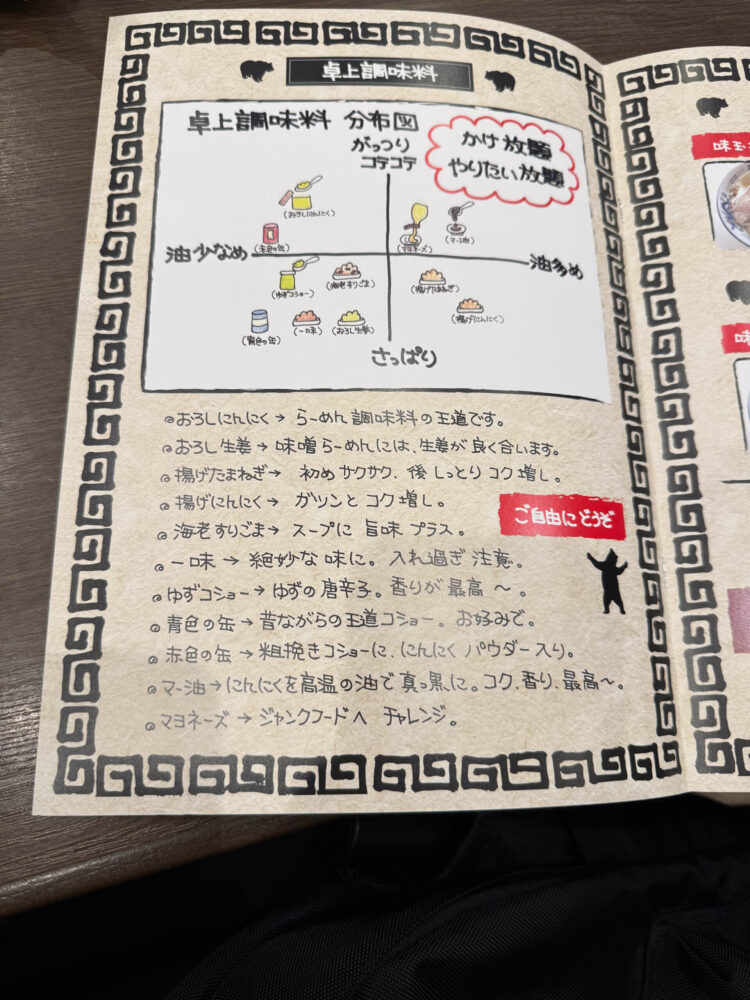 卓上調味料
卓上調味料 分布図
かけ放題
やりたい放題
がっつり
コテコテ
(おろしにんにく)
(赤色の缶)
(マヨネーズ)
(マー油)
油少なめ
油多め
(ゆずコショー)
(海老すりごま)
(揚げたまねぎ)
(揚げにんにく)
(青色の缶)
(一味)
(おろし生姜)
さっぱり
おろしにんにく→ らーめん 調味料の王道です。
おろし生姜→ 味噌らーめんには、生姜が良く合います。
揚げたまねぎ→ 初めサクサク、後しっとり コク増し。
揚げにんにく→ ガツンと コク増し。
海老すりごま→ スープに 旨味 プラス。
一味 → 絶妙な味に。 入れ過ぎ 注意。
ゆずコショー→ゆずの唐辛子。香りが最高 〜 。
青色の缶→昔ながらの王道コショー。お好みで。
赤色の缶→粗挽きコショーに、にんにく パウダー入り。
マー油→にんにくを高温の油で真っ黒に。コク、香り、最高〜。
マヨネーズ → ジャンクフードへ チャレンジ。
ご自由にどうぞ
味玉
味